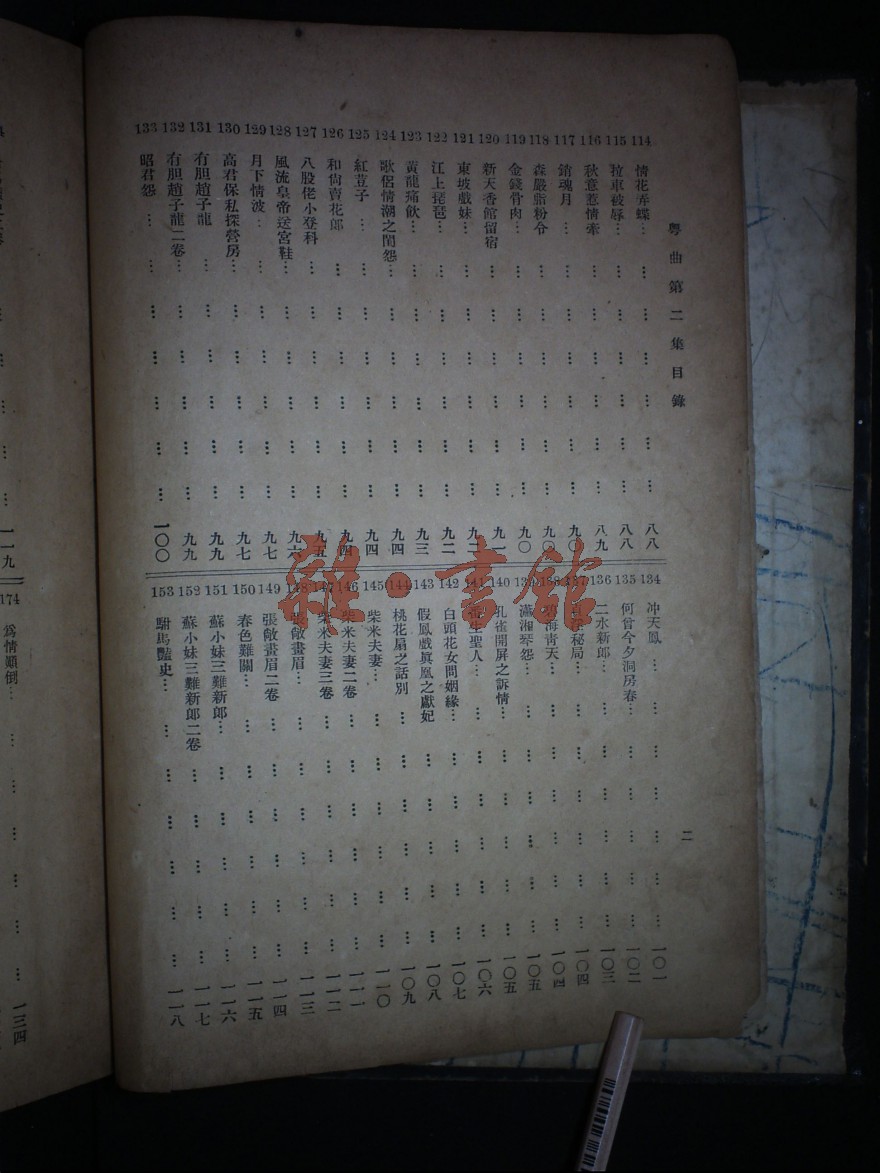 粵曲第二集目錄
二
114 情花弄蝶 八八
115 拉車被辱 八八
116 秋意惹情牽 八九
117 銷魂月 九〇
118 森嚴脂粉令 九〇
119 金錢骨肉 九〇
120 新天香館留宿 九一
121 東坡戲妹 九二
122 江上琵琶 九二
123 黃龍痛飲 九三
124 歌侶情潮之閨怨 九四
125 紅荳子 九四
126 和尙賣花郎 九四
127 八股佬小登科 九五
128 風流皇帝送宮鞋 九六
129 月下情波 九七
130 高君保私探營房 九七
131 冇胆趙子龍 九九
132 冇胆趙子龍二卷 九九
133 昭君怨 一〇〇
134 冲天鳳 一〇一
135 何曾今夕洞房春 一〇二
136 二水新郎 一〇三
137 秘局 一〇四
138 碧海靑天 一〇四
139 瀟湘琴怨 一〇五
140 孔雀開屏之訴情 一〇五
141 生聖人 一〇六
142 白頭花女問姻緣 一〇七
143 假鳳戲眞凰之獻妃 一〇八
144 桃花扇之話別 一〇九
145 柴米夫妻 一一〇
146 柴米夫妻二卷 一一一
147 柴米夫妻三卷 一一二
148 張敞畫眉 一一三
149 張敞畫眉二卷 一一四
150 春色難關 一一五
151 蘇小妹三難新郎 一一六
152 蘇小妹三難新郎二卷 一一七
153 駙馬豔史 一一八
一一九
174 爲情顚倒 一三四
雜·書館